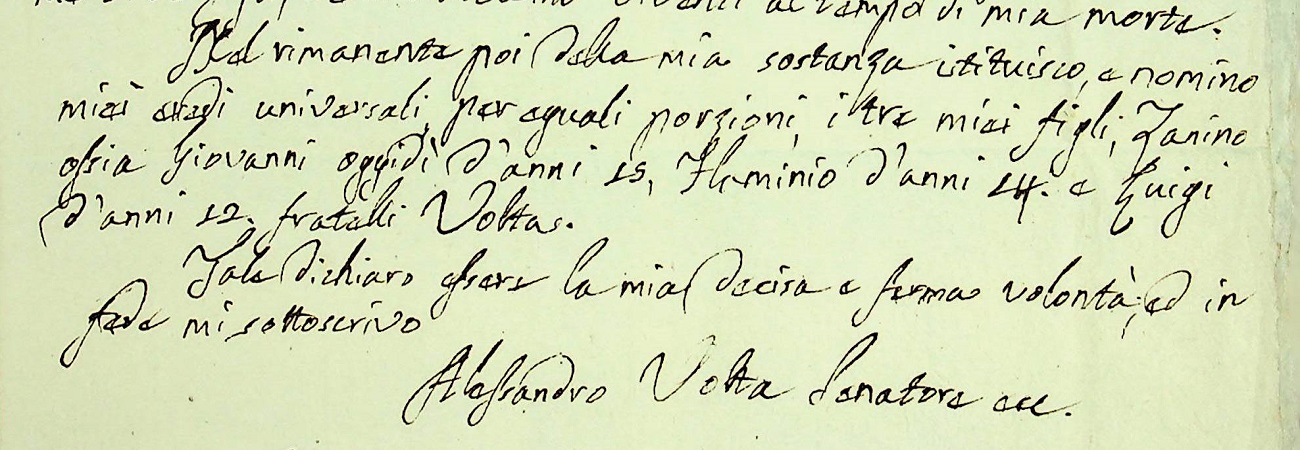 viventi al tempo di mia morte.
Nel rimanente poi della mia sostanza istituisco, e nomino
miei eredi universali, per eguali porzioni, i tre miei figli, Zanino
ossia Giovanni oggidì d'anni 15, Flaminio d'anni 14. e Luigi
d'anni 12. fratelli Volta.
Tale dichiaro essere la mia decisa e ferma volontà, ed in
fede mi sottoscrivo
Alessandro Volta Senatore ecc.